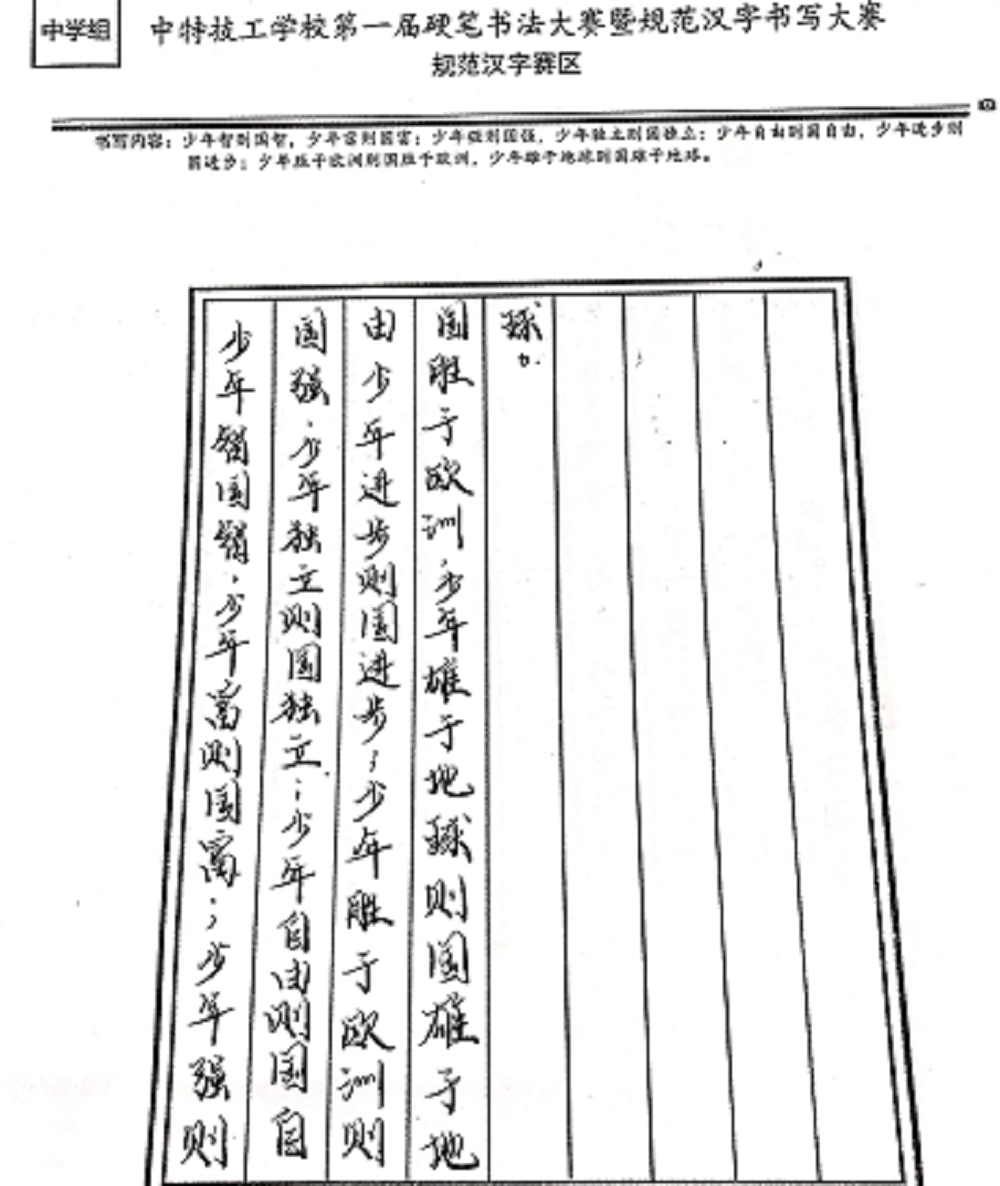 中学组
中特技工学校第一届硬笔书法大赛暨规范汉字书写大赛
规范汉字赛区
书写内容：少年智则国智，少年富则国富；少年强则国强，少年独立则国独立；少年自由则国自由，少年进步则
国进步；少年胜于欧洲则国胜于欧洲，少年雄于地球则国雄于地球。
少年智国智，少年富则国富；少年强则
国强，少年独立则国独立；少年自由则国自
由少年进步则国进步；少年胜于欧洲则
国胜于欧洲，少年雄于地球则国雄于地
球。